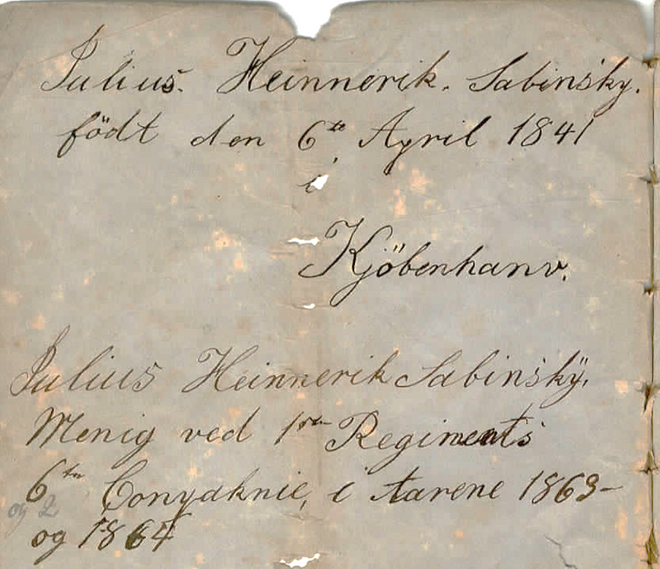 Julius. Heinnerik. Sabinsky.
födt den 6te April 1841
i
Kjöbenhanv.
Julius Heinnerik Sabinsky.
Menig ved 1ste Regiments
6te Conpaknie, i Aarene 1863-
og 2
og 1864